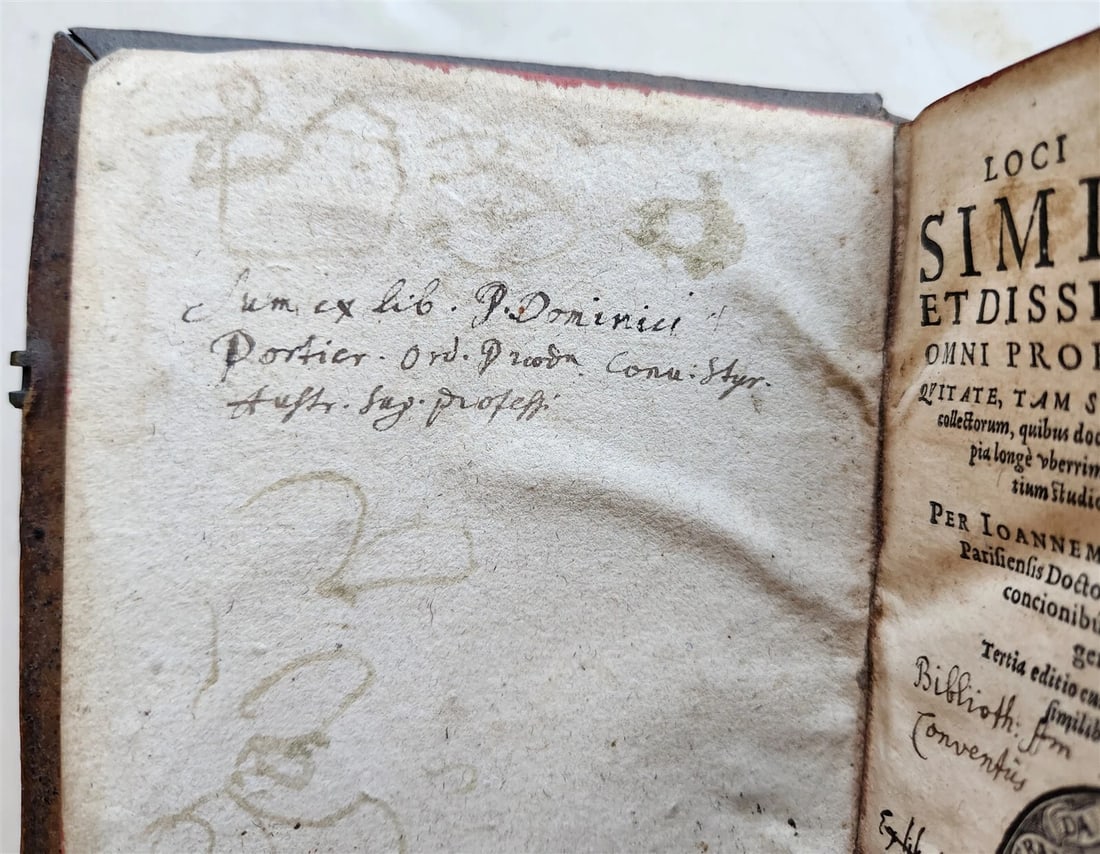 Sum ex lib. P. Dominici
Portier. Ord. Præd. Conu: Styr.
Austr. Sup. professi
LOCI
SIMI
ET DISSI
OMNI PROP
QVITATE, TAM S
collectorum, quibus doc
pia longè vberrim
tium ſtudio
PER IOANNEM
Pariſienſis Docto
concionibu
ge
Tertia editio cu
ſimilib
Biblioth:
Conventûs
Ex lib
DA